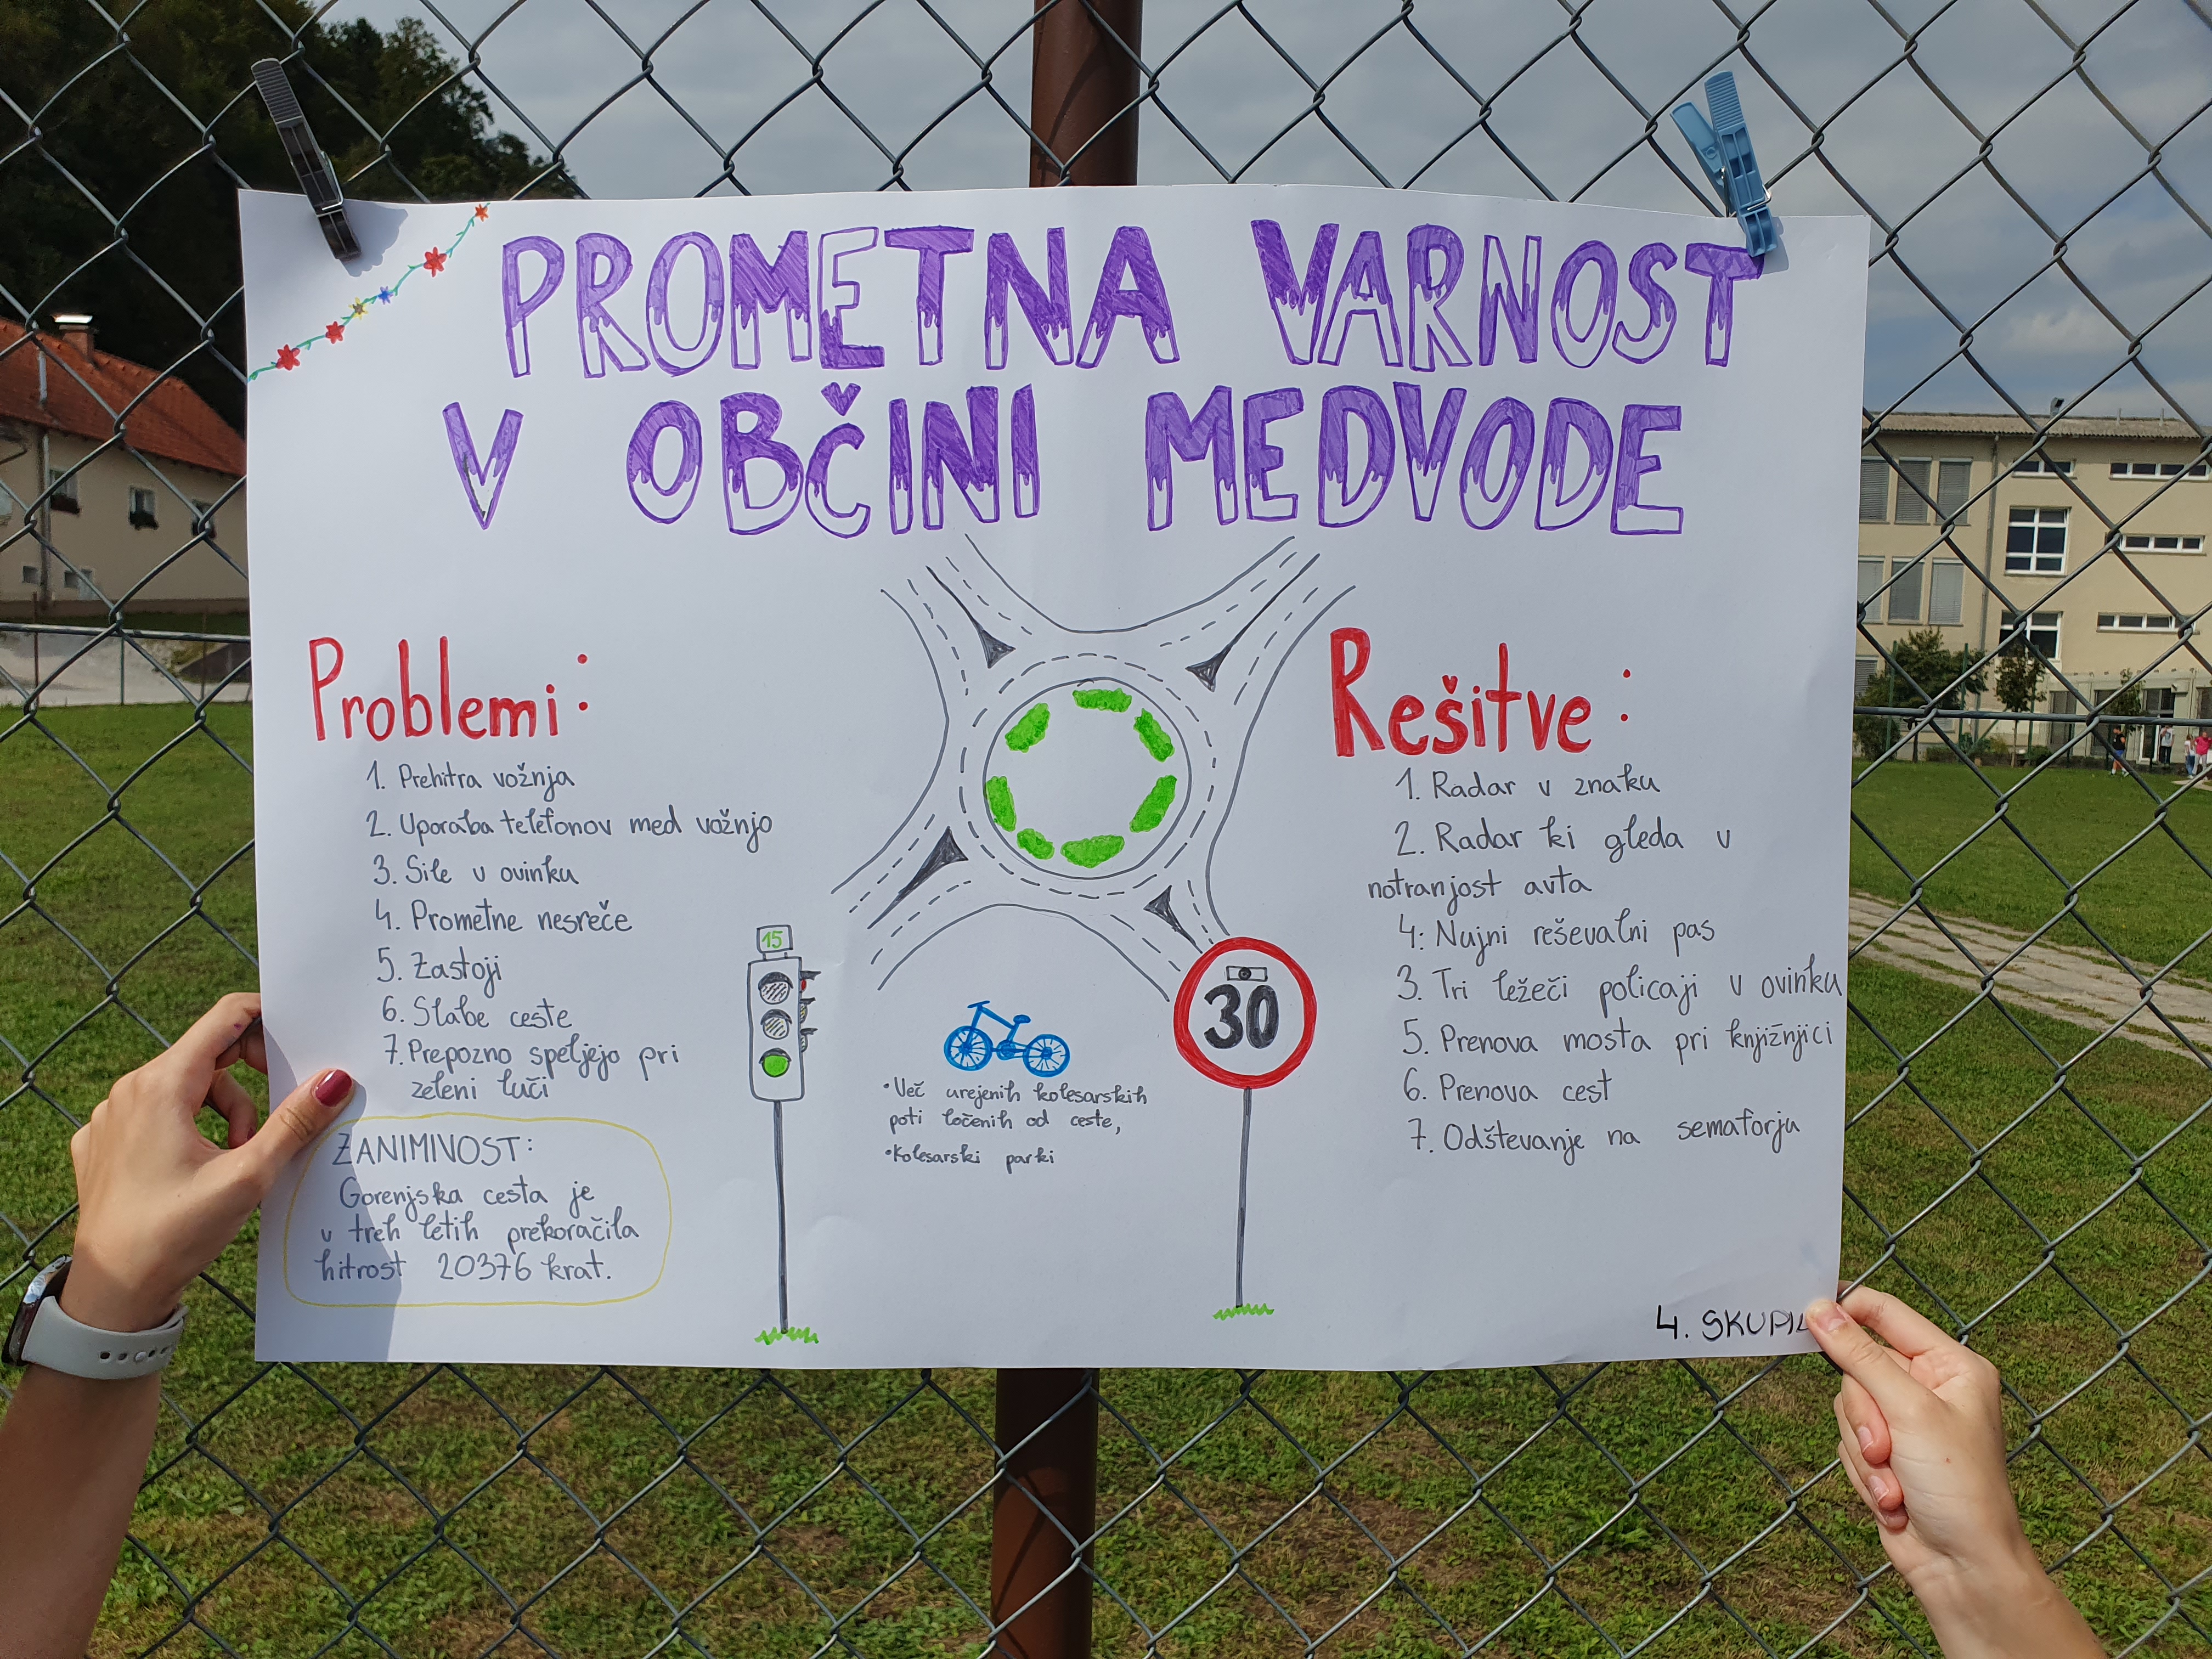 PROMETNA VARNOST
V OBČINI MEDVODE
Problemi:
1. Prehitra vožnja
2. Uporaba telefonov med vožnjo
3. Sile v ovinku
4. Prometne nesreče
5. Zastoji
6. Slabe ceste
7. Prepozno speljejo pri
zeleni luči
ZANIMIVOST:
Gorenjska cesta je
v treh letih prekoračila
hitrost 20376 krat.
15
•Več urejenih kolesarskih
poti ločenih od ceste,
•Kolesarski parki
30
Rešitve:
1. Radar v znaku
2. Radar ki gleda v
notranjost avta
4: Nujni reševalni pas
3. Tri ležeči policaji v ovinku
5. Prenova mosta pri knjižnjici
6. Prenova cest
7. Odštevanje na semaforju
4.